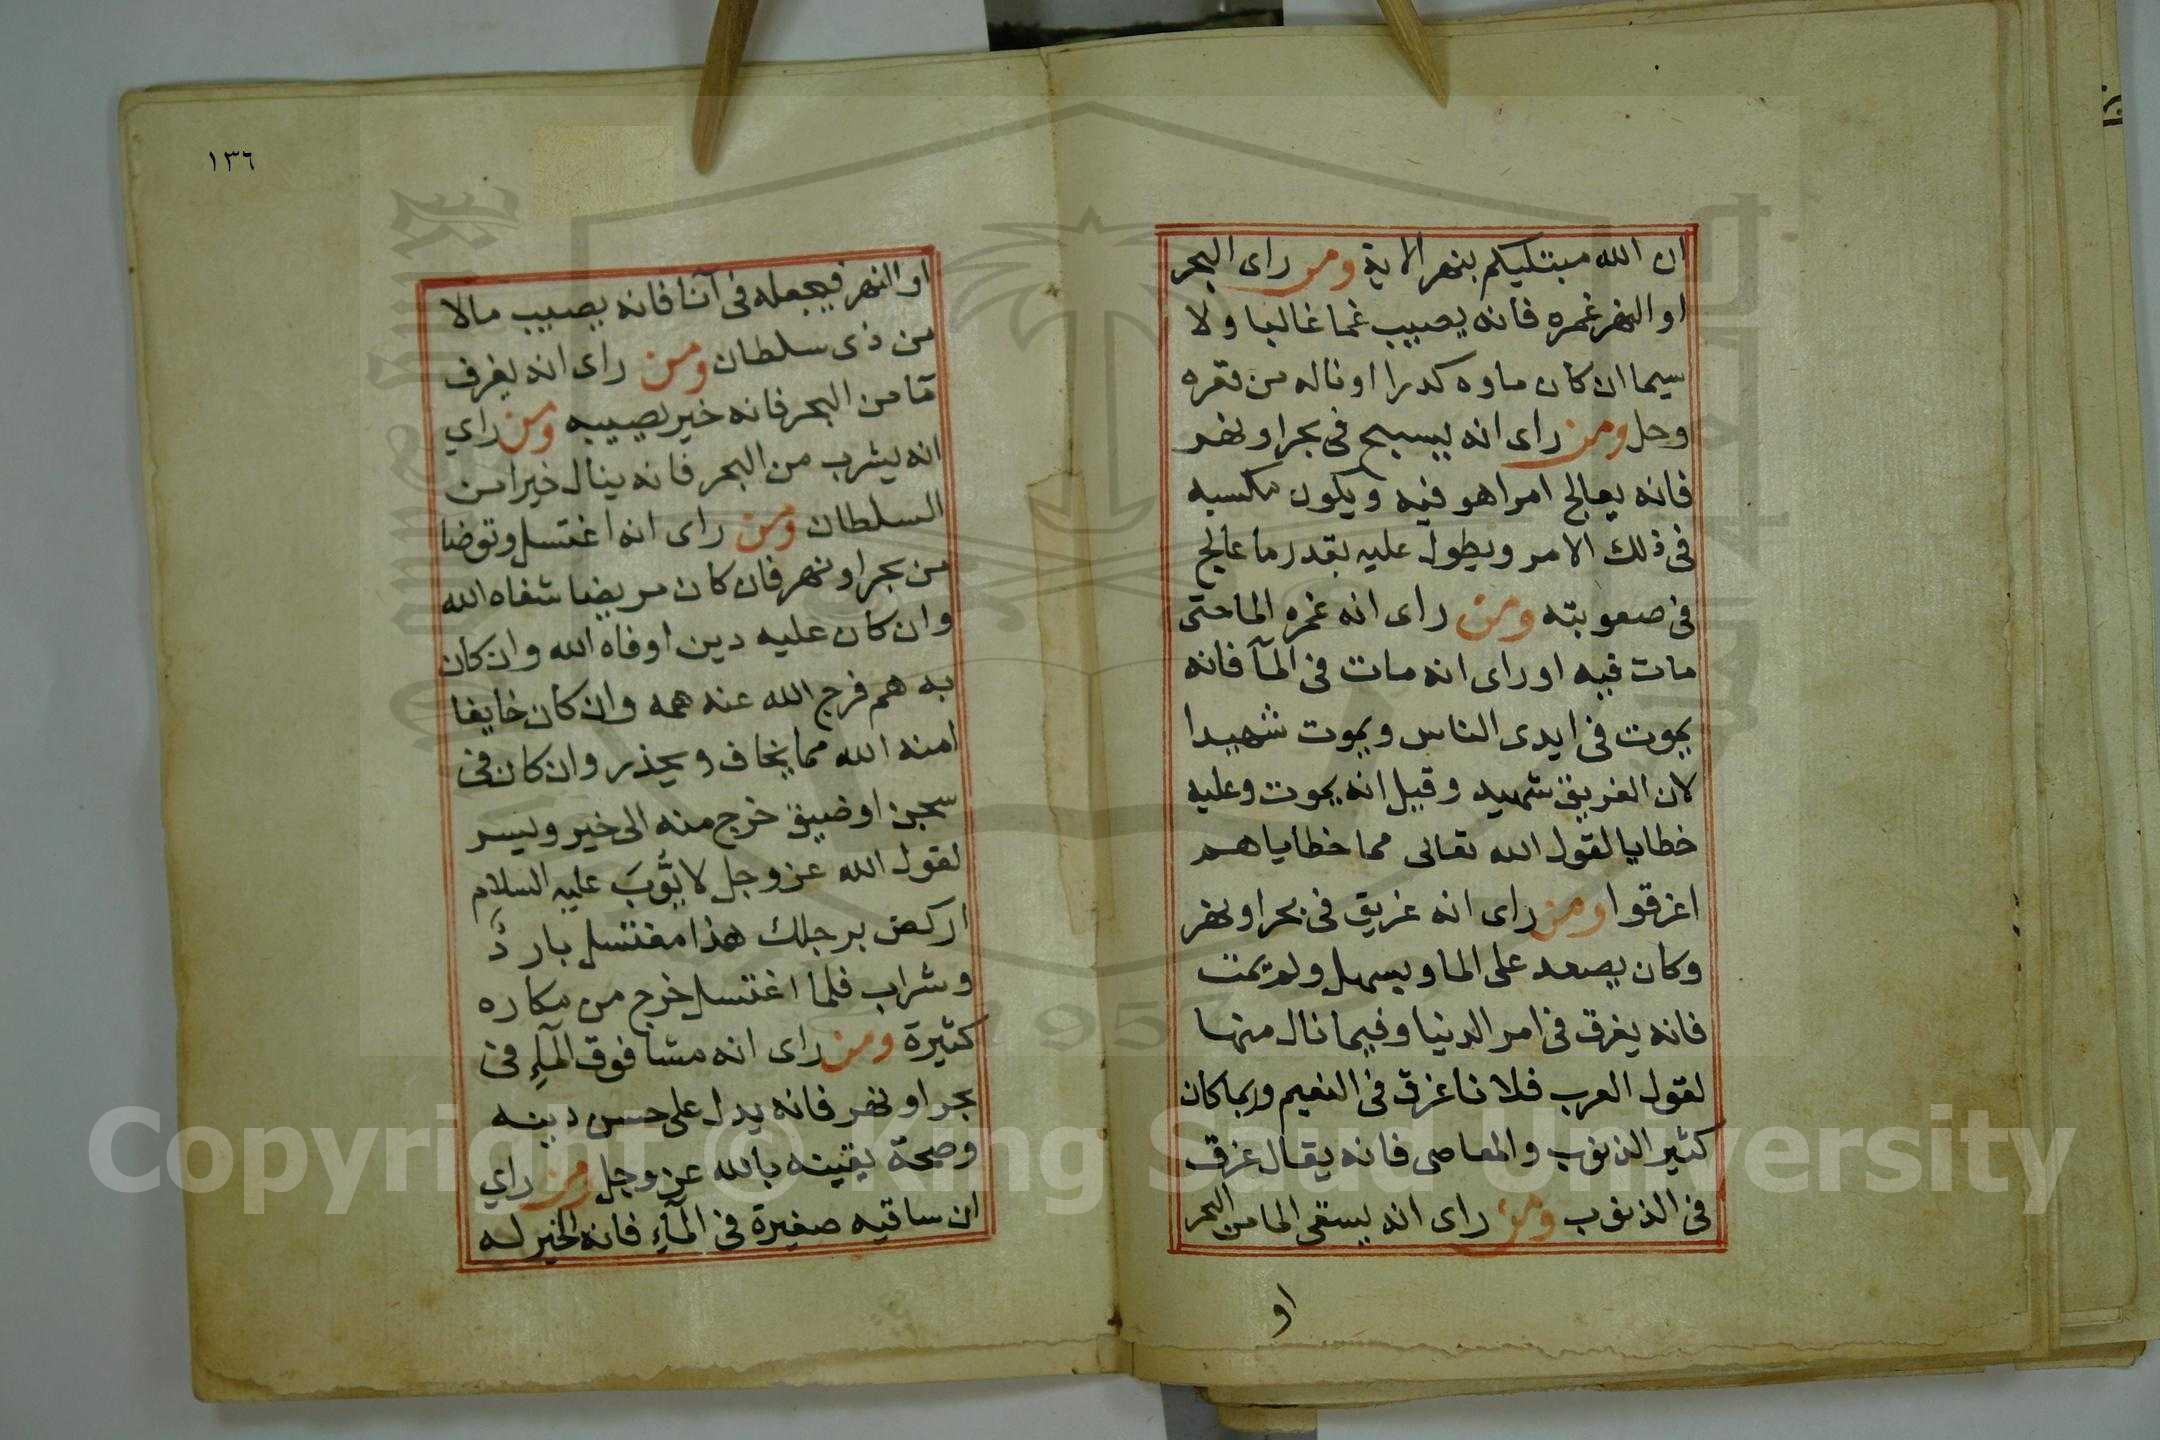 ان الله مبتليكم بنهر الاية ومن راى البحر
او النهر غمره فانه يصيب غما غالبا ولا
سيما ان كان ماوه كدرا او ناله من قعره
وحل ومن راى انه يسبح فى بحر او نهر
فانه يعالج امرا هو فيه ويكون مكسبه
فى ذلك الامر ويطول عليه بقدر ما عالج
فى صعوبته ومن راى انه غمره الما حتى
مات فيه او راى انه مات فى المآ فانه
يموت فى ايدى الناس ويموت شهيدا
لان الغريق شهيد وقيل انه يموت وعليه
خطايا لقول الله تعالى مما خطاياهم
اغرقوا ومن راى انه غريق فى بحر او نهر
وكان يصعد على الما ويسهل ولم يمت
فانه يغرق فى امر الدنيا وفيما نال منها
لقول العرب فلانا غرق فى النعيم وربما كان
كثير الذنوب والمعاصى فانه يقال غرق
فى الذنوب ومن راى انه يستقى الما من البحر
او
١٣٦
او النهر فيجعله فى آنا فانه يصيب مالا
من ذى سلطان ومن راى انه يغرف
مآ من البحر فانه خير يصيبه ومن راي
انه يشرب من البحر فانه ينال خيرا من
السلطان ومن راى انه اغتسل وتوضا
من بحر او نهر فان كان مريضا شفاه الله
وان كان عليه دين اوفاه الله وان كان
به هم فرج الله عنه همه وان كان خايفا
امنه الله مما يخاف ويحذر وان كان فى
سجن او ضيق خرج منه الى خير ويسر
لقول الله عز وجل لايُّوبَ عليه السلام
اركض برجلك هذا مغتسل باردٌ
وشراب فلما اغتسل خرج من مكاره
كثيرة ومن راى انه مشا فوق المآءِ فى
بحر او نهر فانه يدل على حسن دينه
وصحة يقينه بالله عز وجل ومن راي
ان ساقيه صغيرة فى المآءِ فانه الخير له
Copyright © King Saud University